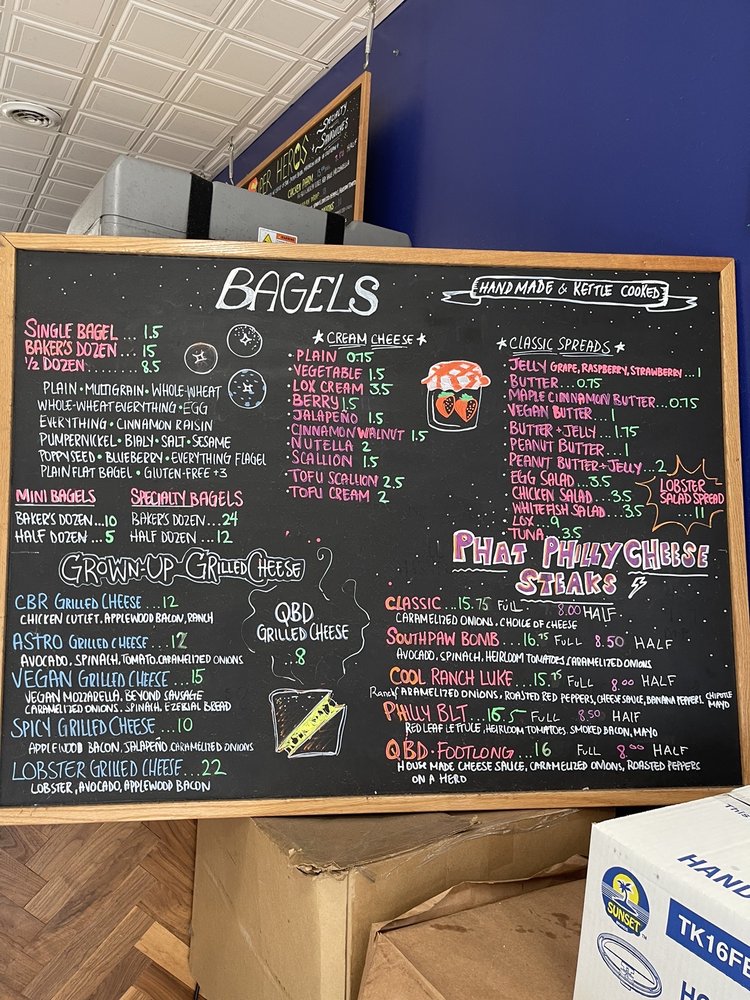 SPECIALTY
SANDWICHES
PER HEROS
CHICKEN PARM
BAGELS
HANDMADE & KETTLE COOKED
SINGLE BAGEL ... 1.5
BAKER'S DOZEN ... 15
1/2 DOZEN ........ 8.5
PLAIN • MULTIGRAIN • WHOLE-WHEAT
WHOLE-WHEAT EVERYTHING • EGG
EVERYTHING • CINNAMON RAISIN
PUMPERNICKEL • BIALY • SALT • SESAME
POPPYSEED • BLUEBERRY • EVERYTHING FLAGEL
PLAIN FLAT BAGEL • GLUTEN-FREE +3
MINI BAGELS
BAKER'S DOZEN...10
HALF DOZEN ... 5
SPECIALTY BAGELS
BAKER'S DOZEN ... 24
HALF DOZEN ... 12
CREAM CHEESE
• PLAIN 0.75
• VEGETABLE 1.5
• LOX CREAM 3.5
• BERRY 1.5
• JALAPEÑO 1.5
• CINNAMON WALNUT 1.5
• NUTELLA 2
• SCALLION 1.5
• TOFU SCALLION 2.5
• TOFU CREAM 2
CLASSIC SPREADS
• JELLY GRAPE, RASPBERRY, STRAWBERRY ...1
• BUTTER ...0.75
• MAPLE CINNAMON BUTTER ...0.75
• VEGAN BUTTER ... 1
• BUTTER + JELLY ... 1.75
• PEANUT BUTTER ... 1
• PEANUT BUTTER + JELLY ..2
• EGG SALAD ...3.5
• CHICKEN SALAD ...3.5
• WHITEFISH SALAD ...3.5
• LOX ... 9
• TUNA ... 3.5
LOBSTER
SALAD SPREAD
... 11
GROWN-UP GRILLED CHEESE
CBR GRILLED CHEESE ... 12
CHICKEN CUTLET, APPLEWOOD BACON, RANCH
ASTRO GRILLED CHEESE ... 12
AVOCADO, SPINACH, TOMATO, CARAMELIZED ONIONS
VEGAN GRILLED CHEESE ... 15
VEGAN MOZZARELLA, BEYOND SAUSAGE
CARAMELIZED ONIONS, SPINACH, EZEKIAL BREAD
SPICY GRILLED CHEESE ... 10
APPLEWOOD BACON, JALAPENO, CARAMELIZED ONIONS
LOBSTER GRILLED CHEESE ... 22
LOBSTER, AVOCADO, APPLEWOOD BACON
QBD
GRILLED CHEESE
.8
PHAT PHILLY CHEESE
STEAKS
CLASSIC ... 15.75 FULL 8.00 HALF
CARAMELIZED ONIONS, CHOICE OF CHEESE
SOUTHPAW BOMB ... 16.75 FULL 8.50 HALF
AVOCADO, SPINACH, HEIRLOOM TOMATOES, CARAMELIZED ONIONS
COOL RANCH LUKE ... 15.75 FULL 8.00 HALF
Ranch CARAMELIZED ONIONS, ROASTED RED PEPPERS, CHEESE SAUCE, BANANA PEPPERS, CHIPOTLE MAYO
PHILLY BLT ... 16.5 FULL 8.50 HALF
RED LEAF LETTUCE, HEIRLOOM TOMATOES, SMOKED BACON, MAYO
QBD • FOOTLONG ... 16 FULL 8.00 HALF
HOUSE MADE CHEESE SAUCE, CARAMELIZED ONIONS, ROASTED PEPPERS
ON A HERO
THIS
HAND
SUNSET
TK16FE
HO